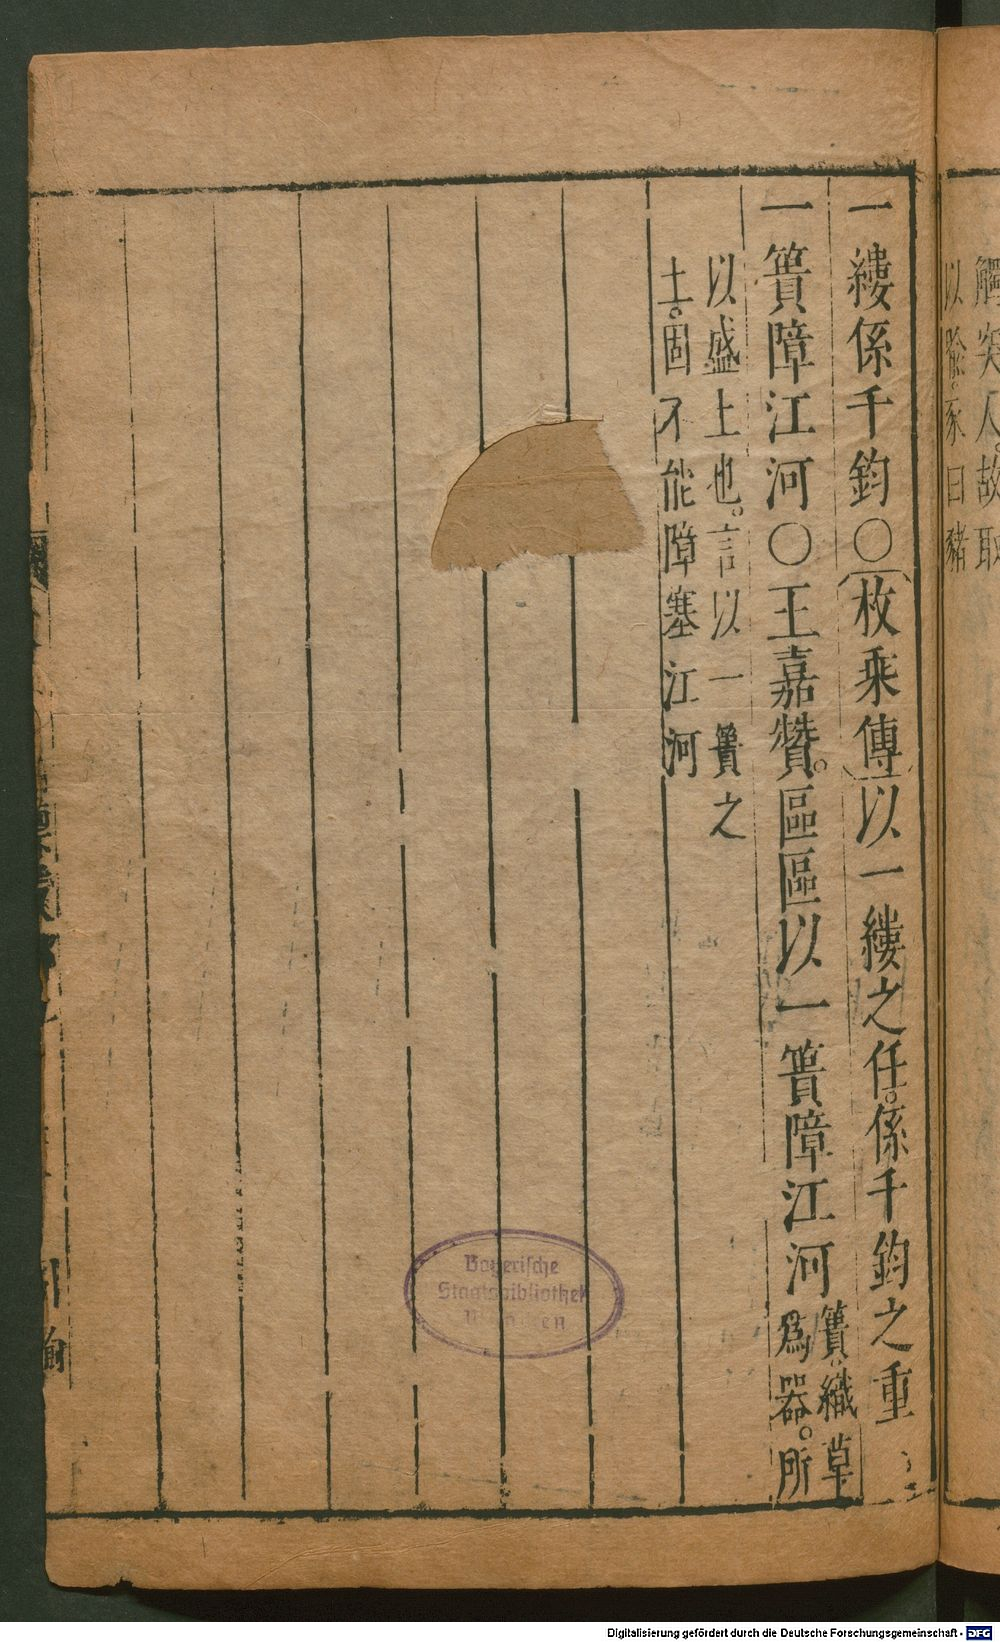 一縷係千鈞〇枚乘傳以一縷之任。係千鈞之重
一簣障江河〇王嘉贊。區區以一簣障江河簣。織草
爲器。所
以盛土也。言以一簣之
土。固不能障塞江河
觸突人。故取
日豬
Bayerische
Staatsbibliothek
München
Digitalisierung gefördert durch die Deutsche Forschungsgemeinschaft - DFG